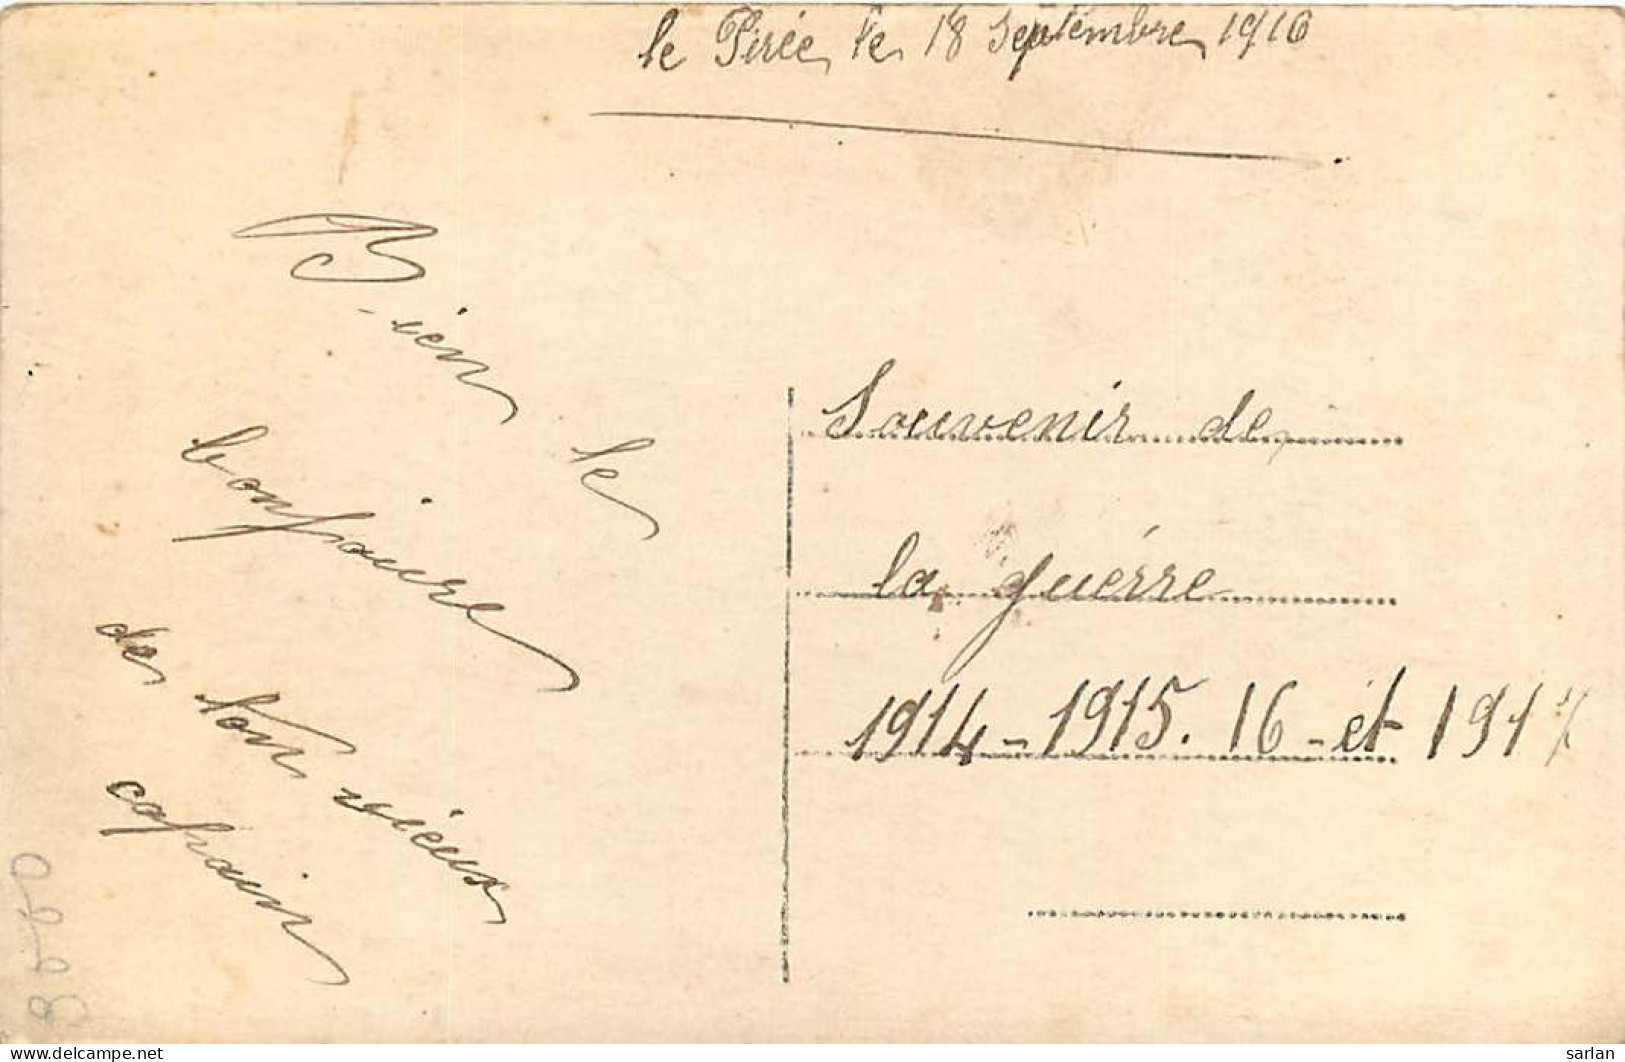 le Pirée, le 18 Septémbre 1916
Bien le
bonjoure
de ton viéux
copain
Souvenir de
la guérre
1914-1915. 16-ét 1917
www.delcampe.net
sarlan